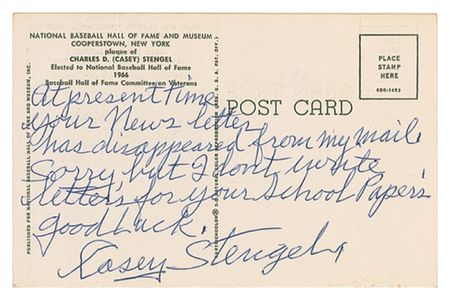 NATIONAL BASEBALL HALL OF FAME AND MUSEUM
COOPERSTOWN, NEW YORK
plaque of
CHARLES D. (CASEY) STENGEL
Elected to National Baseball Hall of Fame
1966
Baseball Hall of Fame Committee on Veterans
PLACE
STAMP
HERE
POST CARD
At present time
your News letter
has disappeared from my mail.
Sorry but I dont write
letters for your School Papers
good luck.
Casey Stengel
PUBLISHED FOR NATIONAL BASEBALL HALL OF FAME AND MUSEUM, INC.